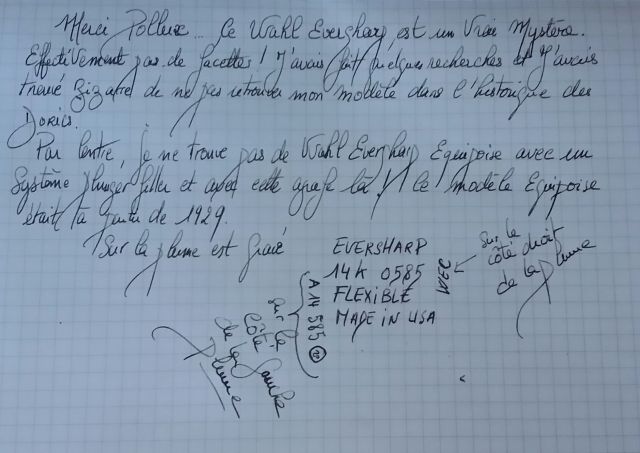 Merci Pollux... Ce Wahl Eversharp est un vrai mystère.
Effectivement pas de facettes ! J'avais fait quelques recherches et j'avais
trouvé bizarre de ne pas retrouver mon modèle dans l'historique des
Dorics.
Par contre, je ne trouve pas de Wahl Eversharp Equipoise avec un
système plunger filler et avec cette agrafe là ! le modèle Equipoise
était à partir de 1929.
Sur la plume est gravé
EVERSHARP
14K 0585
FLEXIBLE
MADE IN USA
sur le
côté droit
de la plume
A 14 585
sur le
côté
de la gauche
plume